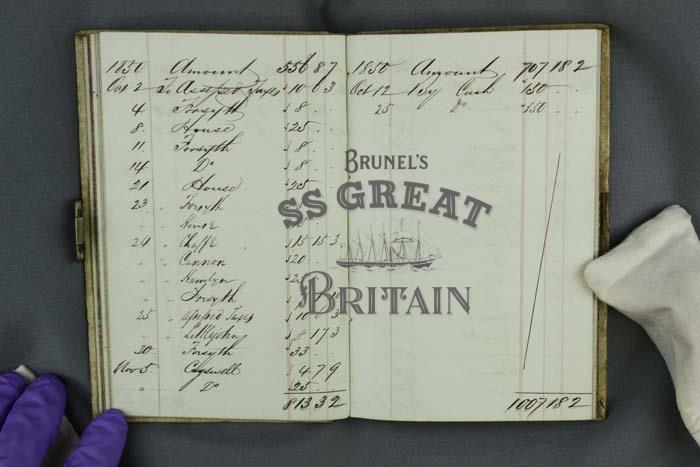 1850 Amount 556 8 7
Oct 2 To Assessed Taxes 10 0 3
4 Forsyth 8 . .
8 House 25 . .
11 Forsyth 8 . .
14 Do 8 . .
21 House 25 . .
23 Forsyth
" House
24 Chaffe 15 15 3
" Cannon 20
" Hamlyn
" Forsyth
25 Assessed Taxes 10 3
" Littlejohn 8 17 3
30 Forsyth 33 . .
Nov 5 Cogswell 4 7 9
" Do 25 . .
813 3 2
1850 Amount 707 18 2
Oct 12 By Cash 150 . .
25 Do 150 . .
1007 18 2
BRUNEL'S
SS GREAT
BRITAIN